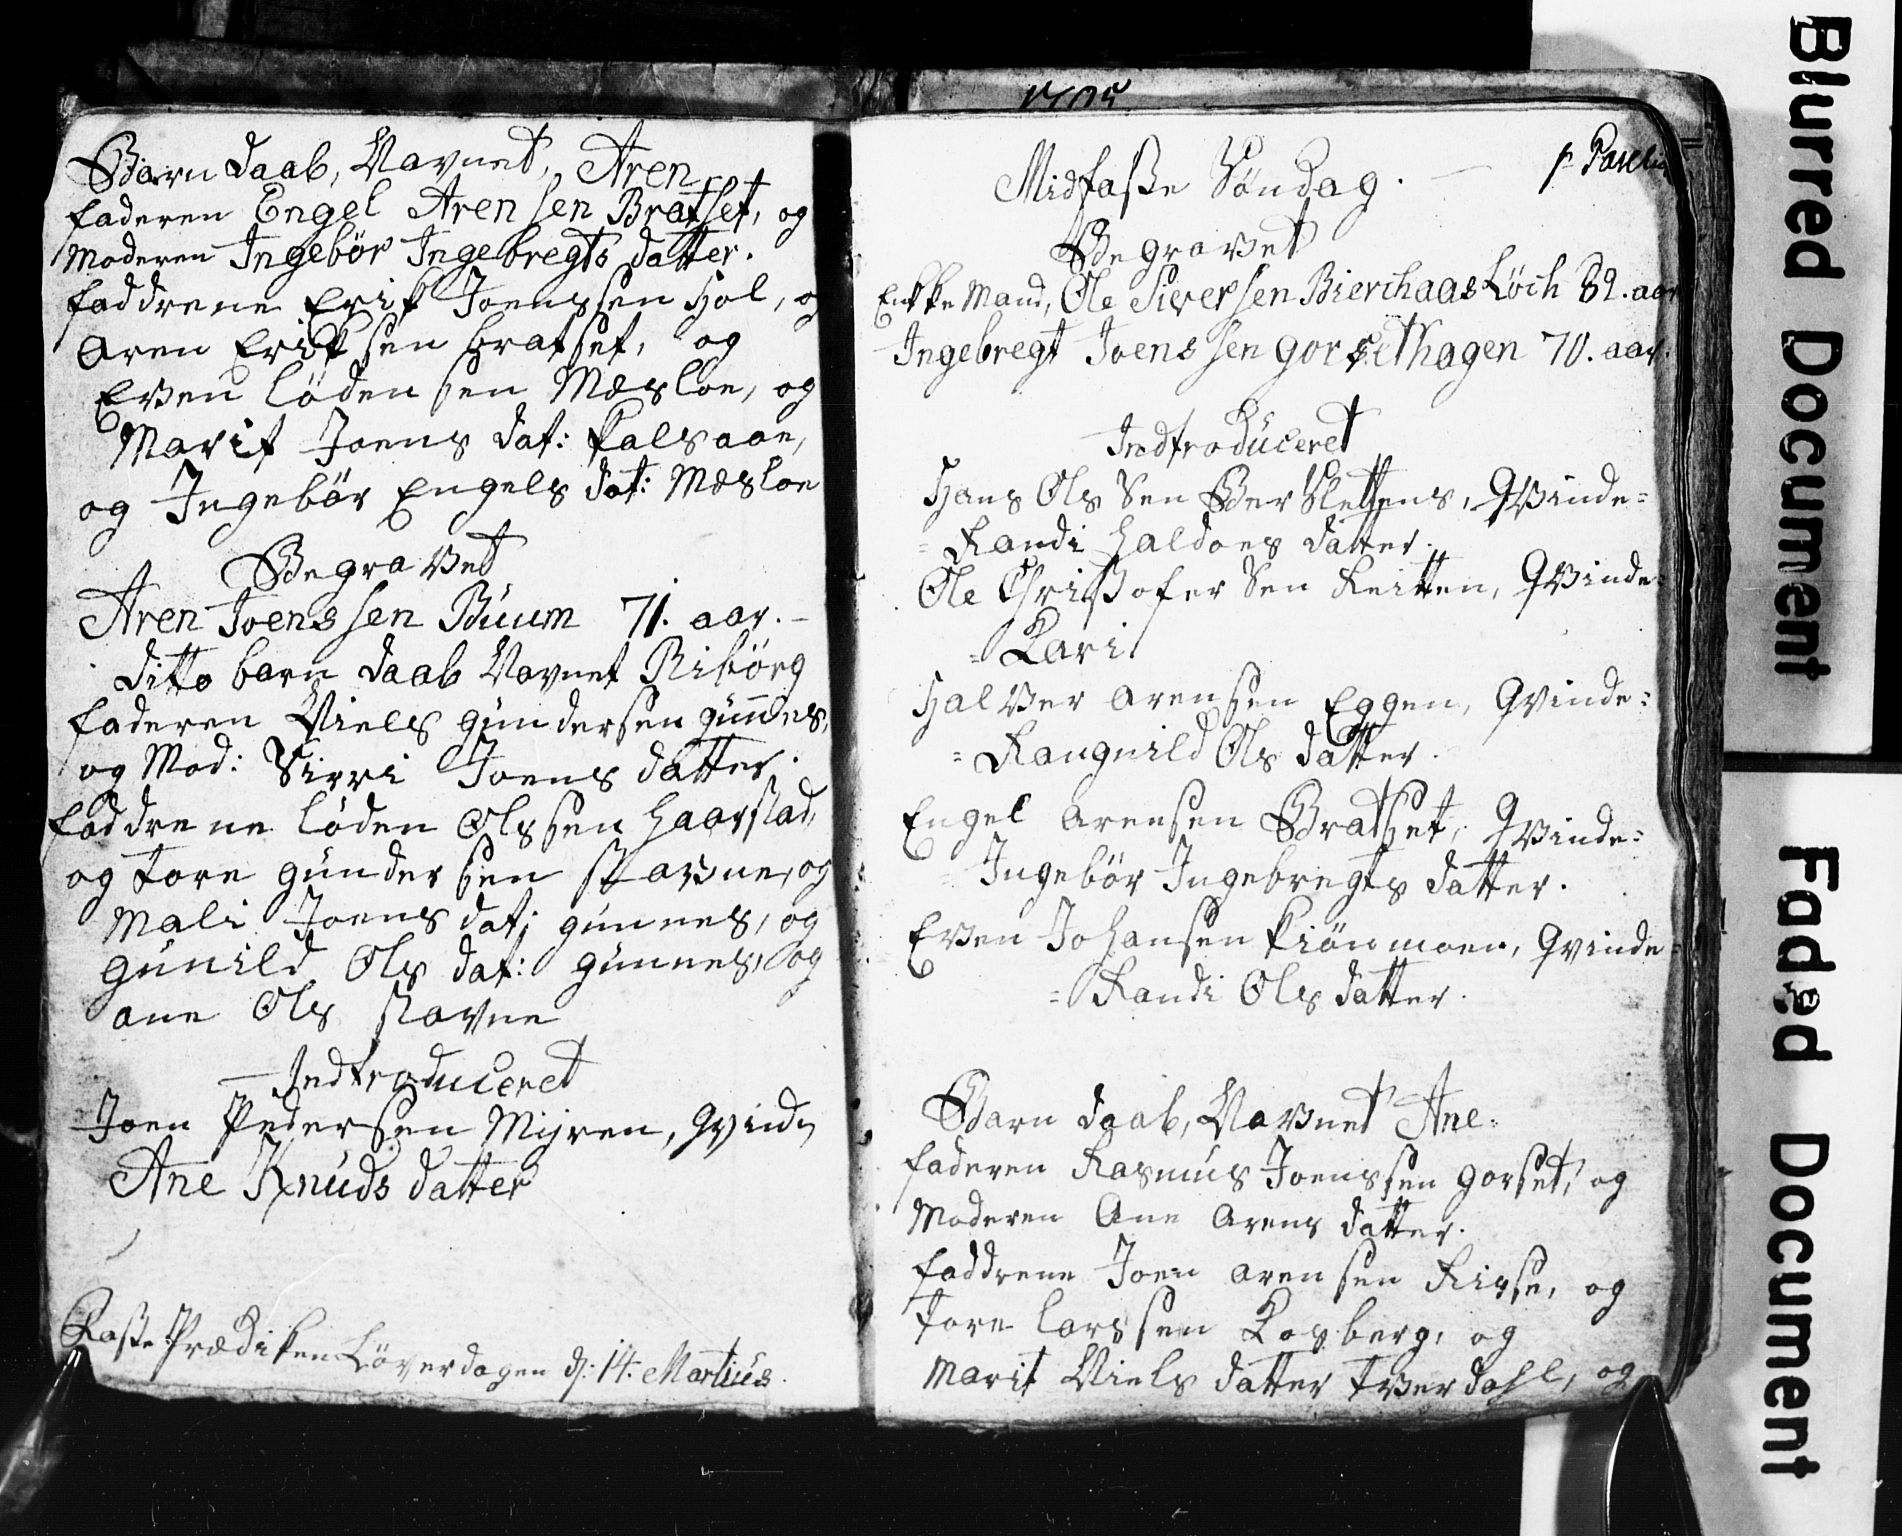 Barn daab, Navnet, Aren
faderen Engel Arensen Bratset, og
Moderen Ingebör Ingebregts datter.
faddrene Erik Joenssen Hol, og
Aren Eriksen bratset, og
Even lödensen Mæsloe, og
Marit Joens dat: Kalsaae,
og Ingebör Engels dat: Mæsloe
Begravet
Aren Joenssen Buum 71. aar.
ditto barn daab Navnet Ribörg
faderen Niels gundersen gunnes,
og Mod: Sirri Joens datter.
faddrene löden Olssen haarstad,
og Tore gundersen stavne, og
Mali Joens dat; gunnes, og
gunild Ols dat: gunnes, og
ane Ols stavne
Indtroduceret
Joen Pedersen Myren, Qvinde
Ane Knuds datter
Faste Prædiken Löverdagen d: 14. Martius.
Midfaste Söndag.
Begravet
Enkke Mand, Ole Siversen Bierchaas Löch 82. aar
Ingebregt Joenssen gorsethagen 70. aar.
Indtroduceret
Hans Ols Sen Berslettens, Qvinde=
=Randi haldoes datter.
Ole Christofer Sen Reitten, Qvinde=
=Kari
Halver arensen Eggen, Qvinde=
=Raugnild Ols datter.
Engel arensen Bratset, Qvinde=
=Ingebör Ingebregts datter.
Even Johansen Kiönmoen, Qvinde=
=Randi Ols datter.
Barn daab, Navnet Ane.
faderen Rasmus Joenssen gorset, og
Moderen Ane Arens datter.
faddrene Joen arensen Rise, og
Tore larssen Kosberg, og
Marit Niels datter tverdahl, og
Blurred Document
Faded Document